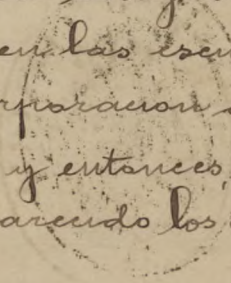 en las escu
rporacion
y entonces
arecido los